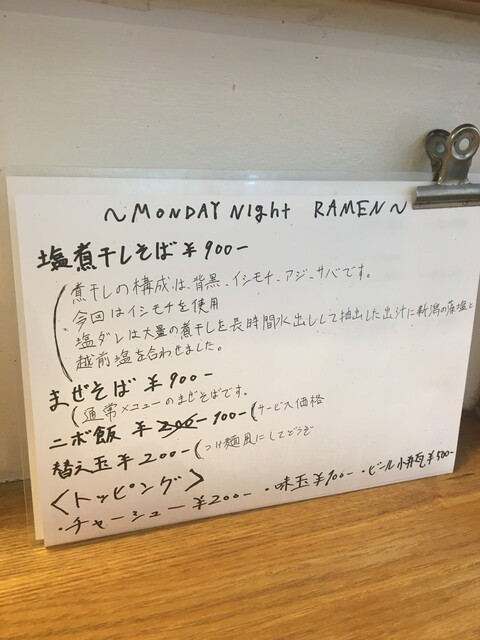 ～MONDAY Night RAMEN～
塩煮干しそば ¥900-
(煮干しの構成は、背黒、イシモチ、アジ、サバです。
今回はイシモチを使用
塩ダレは大量の煮干しを長時間水出しして抽出した出汁に新潟の藻塩と
越前塩を合わせました。
まぜそば ¥900-
(通常メニューのまぜそばです。
ニボ飯 ¥200- 100- (サービス価格
替え玉 ¥200- (つけ麺風にしてどうぞ
〈トッピング〉
・チャーシュー ¥200- ・味玉 ¥100- ・ビール小瓶 ¥500-